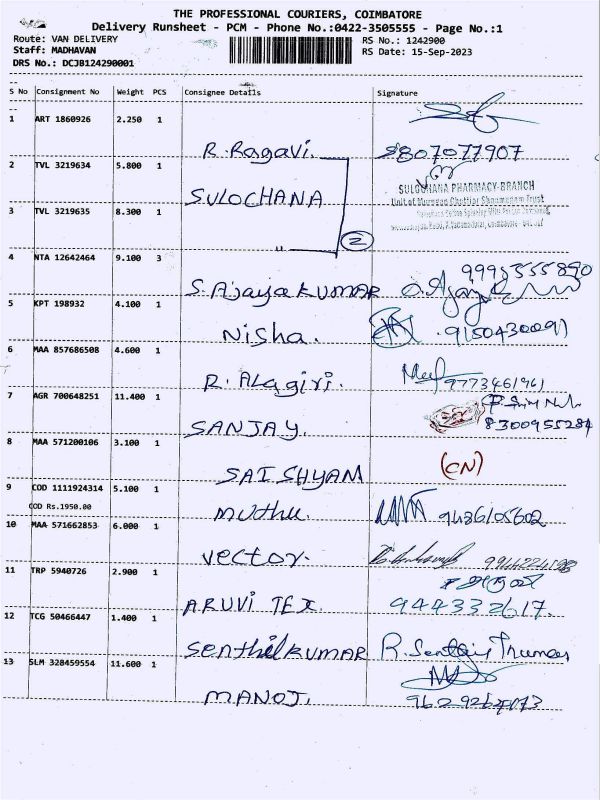 THE PROFESSIONAL COURIERS, COIMBATORE
Delivery Runsheet - PCM - Phone No.:0422-3505555 - Page No.:1
Route: VAN DELIVERY RS No.: 1242900
Staff: MADHAVAN RS Date: 15-Sep-2023
DRS No.: DCJB124290001
S No Consignment No Weight PCS Consignee Details Signature
1 ART 1860926 2.250 1
R. Ragavi. 9807077907
2 TVL 3219634 5.800 1
SULOCHANA PHARMACY-BRANCH
SULOCHANA
Unit of Murugan Chettiar Shanmugam Trust
3 TVL 3219635 8.300 1
" 2
4 NTA 12642464 9.100 3
S. Ajayakumar
5 KPT 198932 4.100 1
Nisha. 9150430091
6 MAA 857686508 4.600 1
R. Alagiri. 9773461961
7 AGR 700648251 11.400 1
SANJAY. 8300955284
8 MAA 571200106 3.100 1
SAI SHYAM (CN)
9 COD 1111924314 5.100 1
COD Rs.1950.00
Muthu 9486105602
10 MAA 571662853 6.000 1
Vector.
11 TRP 5940726 2.900 1
ARUVI TEX. 944332617.
12 TCG 50466447 1.400 1
Senthilkumar
13 SLM 328459554 11.600 1
MANOJ.